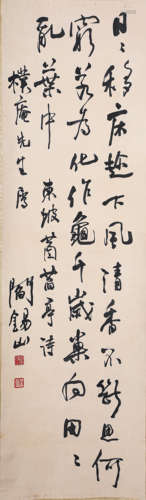 日〻移床趁下風清香不斷思何
窮若為化作龜千歲巢向田〻
亂葉中 東坡菡萏亭詩
樸庵先生屬
閻錫山